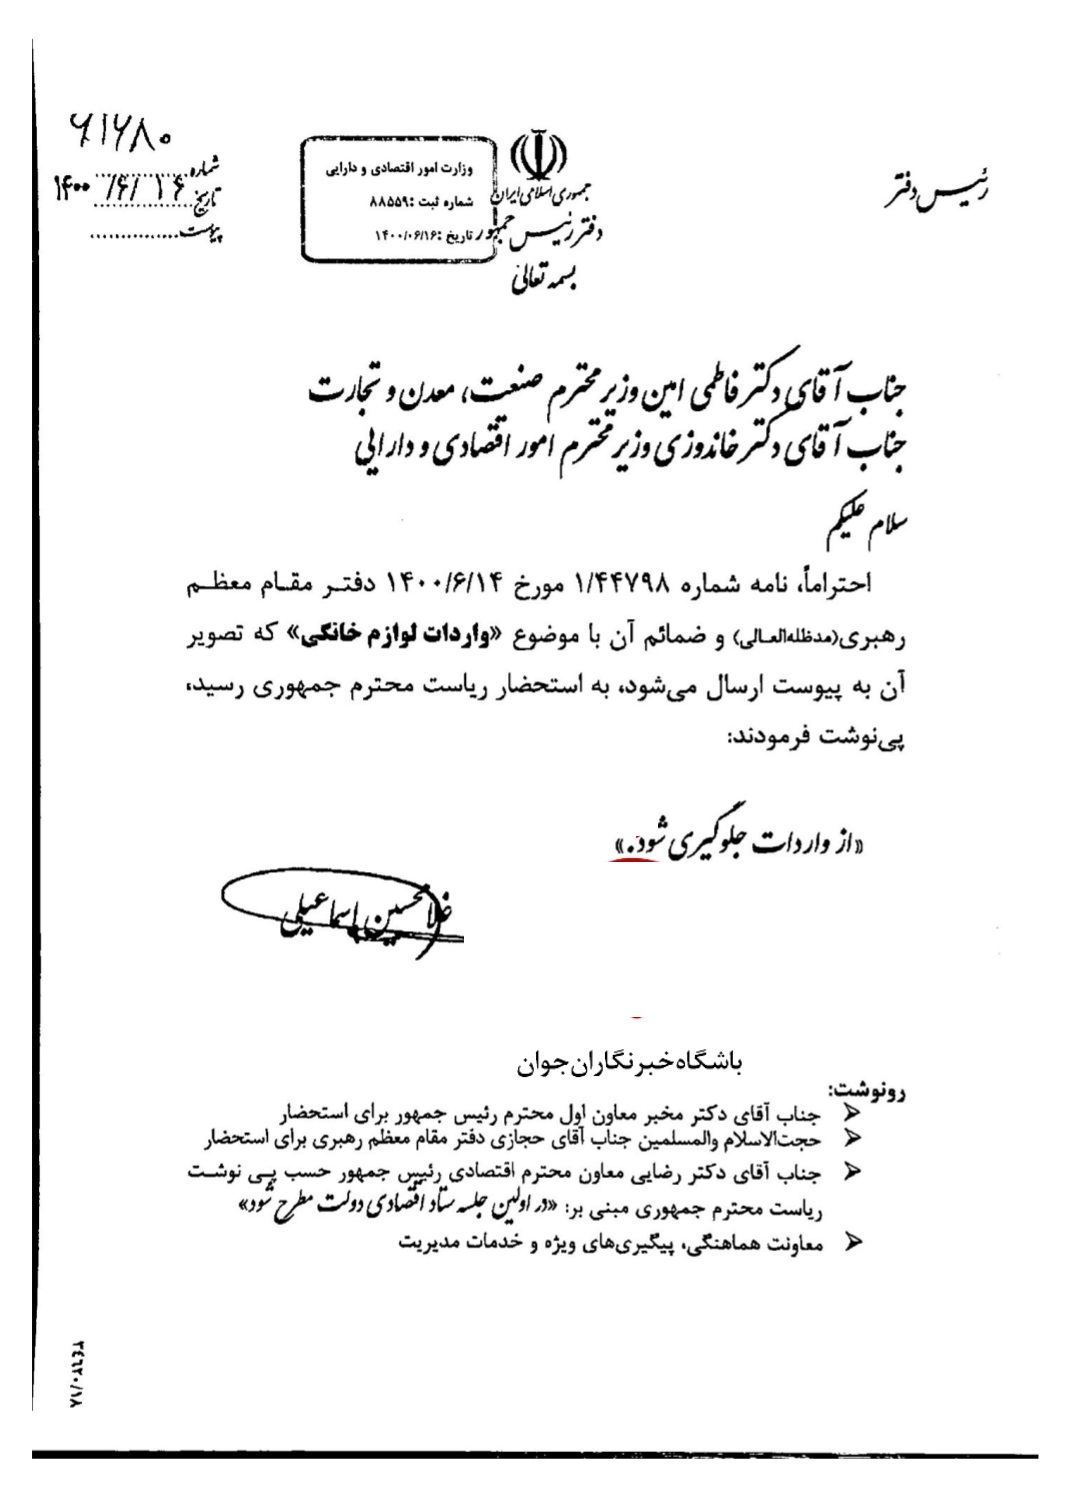 رئیس دفتر
جمهوری اسلامی ایران
دفتر رئیس جمهور
بسمه تعالی
وزارت امور اقتصادی و دارایی
شماره ثبت :۸۸۵۵۹
تاریخ :۱۴۰۰/۰۶/۱۶
۶۱۶۸۰
شماره
تاریخ ۱۴۰۰/۶/۱۶
پیوست
جناب آقای دکتر فاطمی امین وزیر محترم صنعت، معدن و تجارت
جناب آقای دکتر خاندوزی وزیر محترم امور اقتصادی و دارایی
سلام علیکم
احتراماً، نامه شماره ۱/۴۴۷۹۸ مورخ ۱۴۰۰/۶/۱۴ دفتر مقام معظم
رهبری(مدظله‌العالی) و ضمائم آن با موضوع «واردات لوازم خانگی» که تصویر
آن به پیوست ارسال می‌شود، به استحضار ریاست محترم جمهوری رسید،
پی‌نوشت فرمودند:
«از واردات جلوگیری شود.»
غلامحسین اسماعیلی
باشگاه خبرنگاران جوان
رونوشت:
➢ جناب آقای دکتر مخبر معاون اول محترم رئیس جمهور برای استحضار
➢ حجت‌الاسلام والمسلمین جناب آقای حجازی دفتر مقام معظم رهبری برای استحضار
➢ جناب آقای دکتر رضایی معاون محترم اقتصادی رئیس جمهور حسب پی نوشت
ریاست محترم جمهوری مبنی بر: «در اولین جلسه ستاد اقتصادی دولت مطرح شود»
➢ معاونت هماهنگی، پیگیری‌های ویژه و خدمات مدیریت